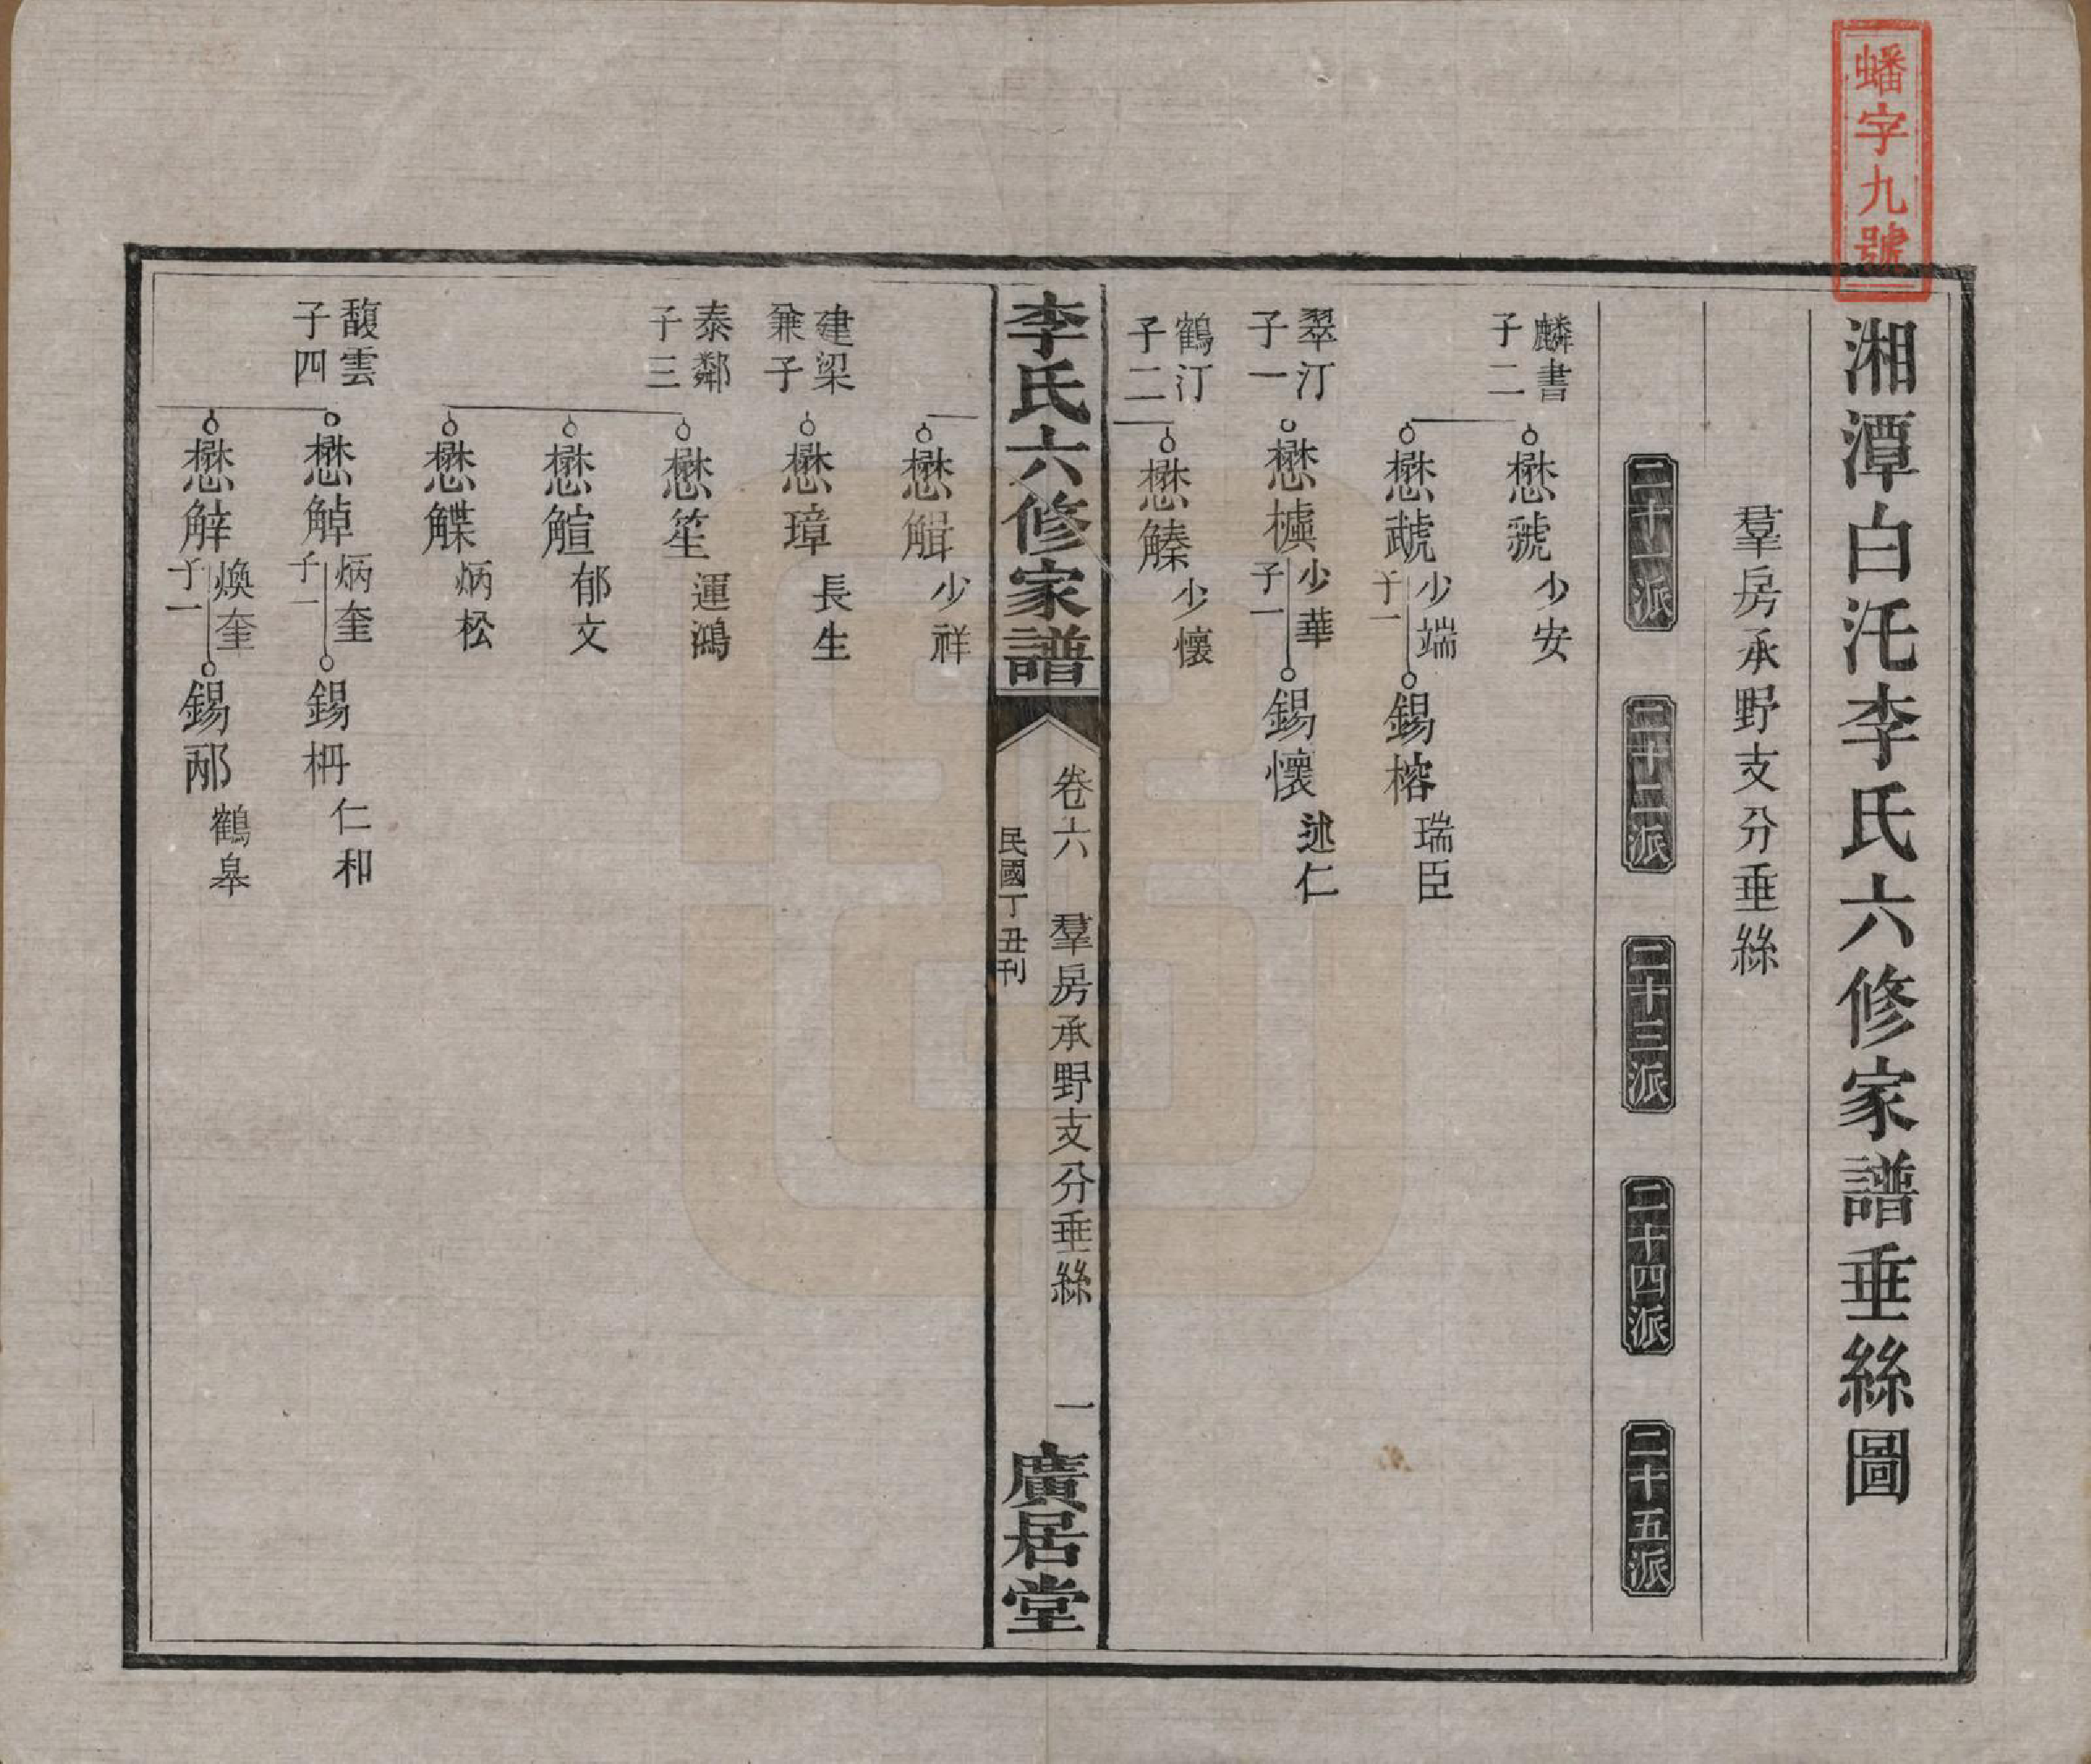 蟠字九號
湘潭白汑李氏六修家譜垂絲圖
羣房承野支分垂絲
二十一派
二十二派
二十三派
二十四派
二十五派
麟書
子二
懋虢
少安
懋虣
少端
子一
錫榕
瑞臣
翠汀
子一
懋櫖
少華
子一
錫懷
述仁
鶴汀
子二
懋
少懷
李氏六修家譜
卷六
羣房承野支分垂絲
一
民國丁丑刊
廣居堂
懋
少祥
建梁
兼子
懋璋
長生
泰鄰
子三
懋笙
運鴻
懋觛
郁文
懋
炳松
馥雲
子四
懋
炳奎
子一
錫枬
仁和
懋
煥奎
子一
錫邴
鶴皋